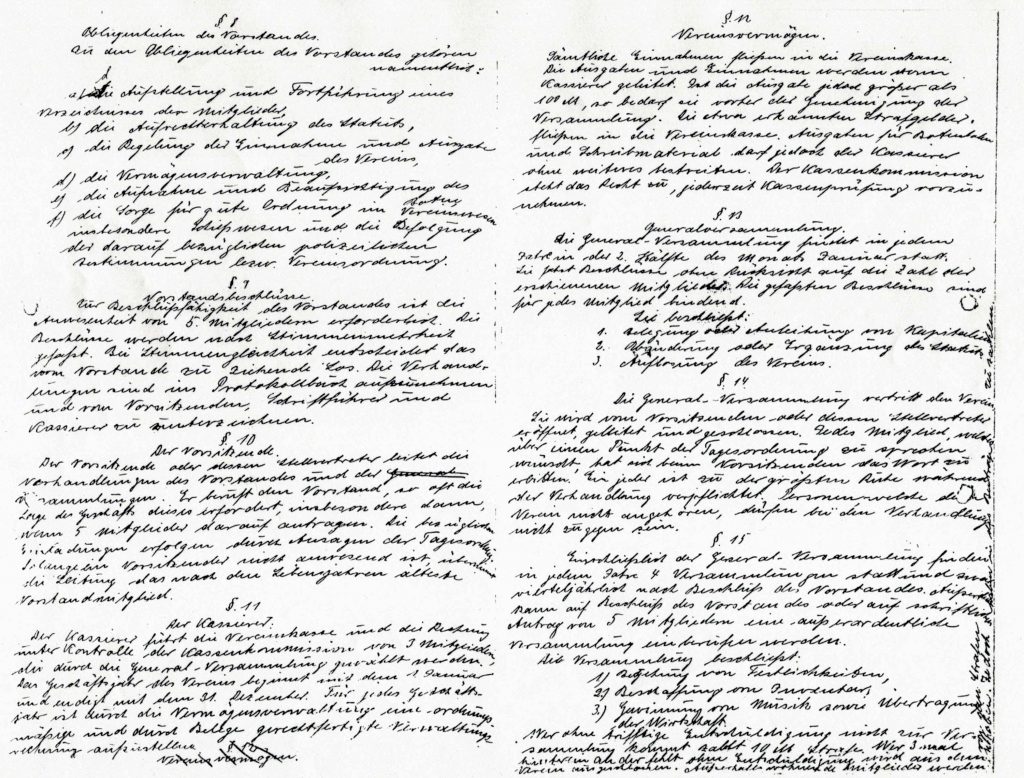 § 8
Obliegenheiten des Vorstandes.
Zu den Obliegenheiten des Vorstandes gehören
namentlich:
a) die Aufstellung und Fortführung eines
Verzeichnisses der Mitglieder,
b) die Aufrechterhaltung des Statuts,
c) die Regelung der Einnahme und Ausgabe
des Vereins,
d) die Vermögensverwaltung,
e) die Aufnahme und Beaufsichtigung des
f) die Sorge für gute Ordnung im Vereinswesen
insbesondere Schießwesen und die Befolgung
der darauf bezüglichen polizeilichen
Bestimmungen bezw. Vereinsordnung.
§ 9
Vorstandsbeschlüsse
Zur Beschlußfähigkeit des Vorstandes ist die
Anwesenheit von 5 Mitgliedern erforderlich. Die
Beschlüsse werden nach Stimmenmehrheit
gefaßt. Bei Stimmengleichheit entscheidet das
vom Vorstande zu ziehende Los. Die Verhand-
lungen sind ins Protokollbuch aufzunehmen
und vom Vorsitzenden, Schriftführer und
Kassierer zu unterzeichnen.
§. 10
Der Vorsitzende.
Der Vorsitzende oder dessen Stellvertreter leitet die
Verhandlungen des Vorstandes und der
Versammlungen. Er beruft den Vorstand, so oft die
Lage des Geschäfts dieses erfordert, insbesondere dann,
wenn 5 Mitglieder darauf antragen. Die bezüglichen
Einladungen erfolgen durch Ansagen der
Solange ein Vorsitzender nicht anwesend ist,
die Leitung das nach den Lebensjahren älteste
Vorstandmitglied.
§. 11
Der Kassierer.
Der Kassierer führt die Vereinskasse und die Rechnung
unter Kontrolle der Kassenkommission von 3 Mitgliedern,
die durch die General-Versammlung gewählt werden.
Das Geschäftsjahr des Vereins beginnt mit dem 1. Januar
und endigt mit dem 31. Dezember. Für jedes Geschäfts-
jahr ist durch die Vermögensverwaltung eine ordnungs-
mäßige und durch Belege gerechtfertigte Verwaltungs-
rechnung aufzustellen.
§ 12
Vereinsvermögen.
§. 12
Vereinsvermögen.
Sämtliche Einnahmen fließen in die Vereinskasse.
Die Ausgaben und Einnahmen werden vom
Kassierer geleitet. Ist die Ausgabe jedoch größer als
100 M, so bedarf sie vorher der Genehmigung der
Versammlung. Die etwa erkannten Strafgelder
fließen in die Vereinskasse. Ausgaben für Botenlohn
und Schreibmaterial darf jedoch der Kassierer
ohne weiteres bestreiten. Der Kassenkommission
steht das Recht zu, jederzeit Kassenprüfung vorzu-
nehmen.
§. 13
Generalversammlung.
Die General-Versammlung findet in jedem
Jahre in der 2. Hälfte des Monats Januar statt.
Sie faßt Beschlüsse ohne Rücksicht auf die Zahl der
erschienenen Mitglieder. Die gefaßten Beschlüsse sind
für jedes Mitglied bindend.
Sie beschließt:
1. Belegung oder Anleihung von Kapitalien
2. Abänderung oder Ergänzung des Statuts
3. Auflösung des Vereins.
§ 14
Die General-Versammlung vertritt den Verein
Sie wird vom Vorsitzenden oder dessen Stellvertreter
eröffnet, geleitet und geschlossen. Jedes Mitglied, welches
über einen Punkt der Tagesordnung zu sprechen
wünscht, hat sich beim Vorsitzenden das Wort zu
erbitten. Ein jeder ist zu der größten Ruhe während
der Verhandlung verpflichtet. Personen welche dem
Verein nicht angehören, dürfen bei den Verhandlung
nicht zugegen sein.
§. 15
Einschließlich der General-Versammlung finden
in jedem Jahre 4 Versammlungen statt und zwar
vierteljährlich nach Beschluß des Vorstandes. Außerdem
kann auf Beschluß des Vorstandes oder auf schriftlichen
Antrag von 5 Mitgliedern eine außerordentliche
Versammlung einberufen werden.
Die Versammlung beschließt:
1) Begehung von Festlichkeiten,
2) Beschaffung von Inventar,
3.) Gewinnung von Musik sowie Übertragung
der Wirtschaft
Wer ohne triftige Entschuldigung nicht zur Ver-
sammlung kommt zahlt 10 M Strafe. Wer 3 mal
hintereinander fehlt ohne Entschuldigung wird aus dem
Verein ausgeschlossen. Außerhalb wohnende Mitglieder werden